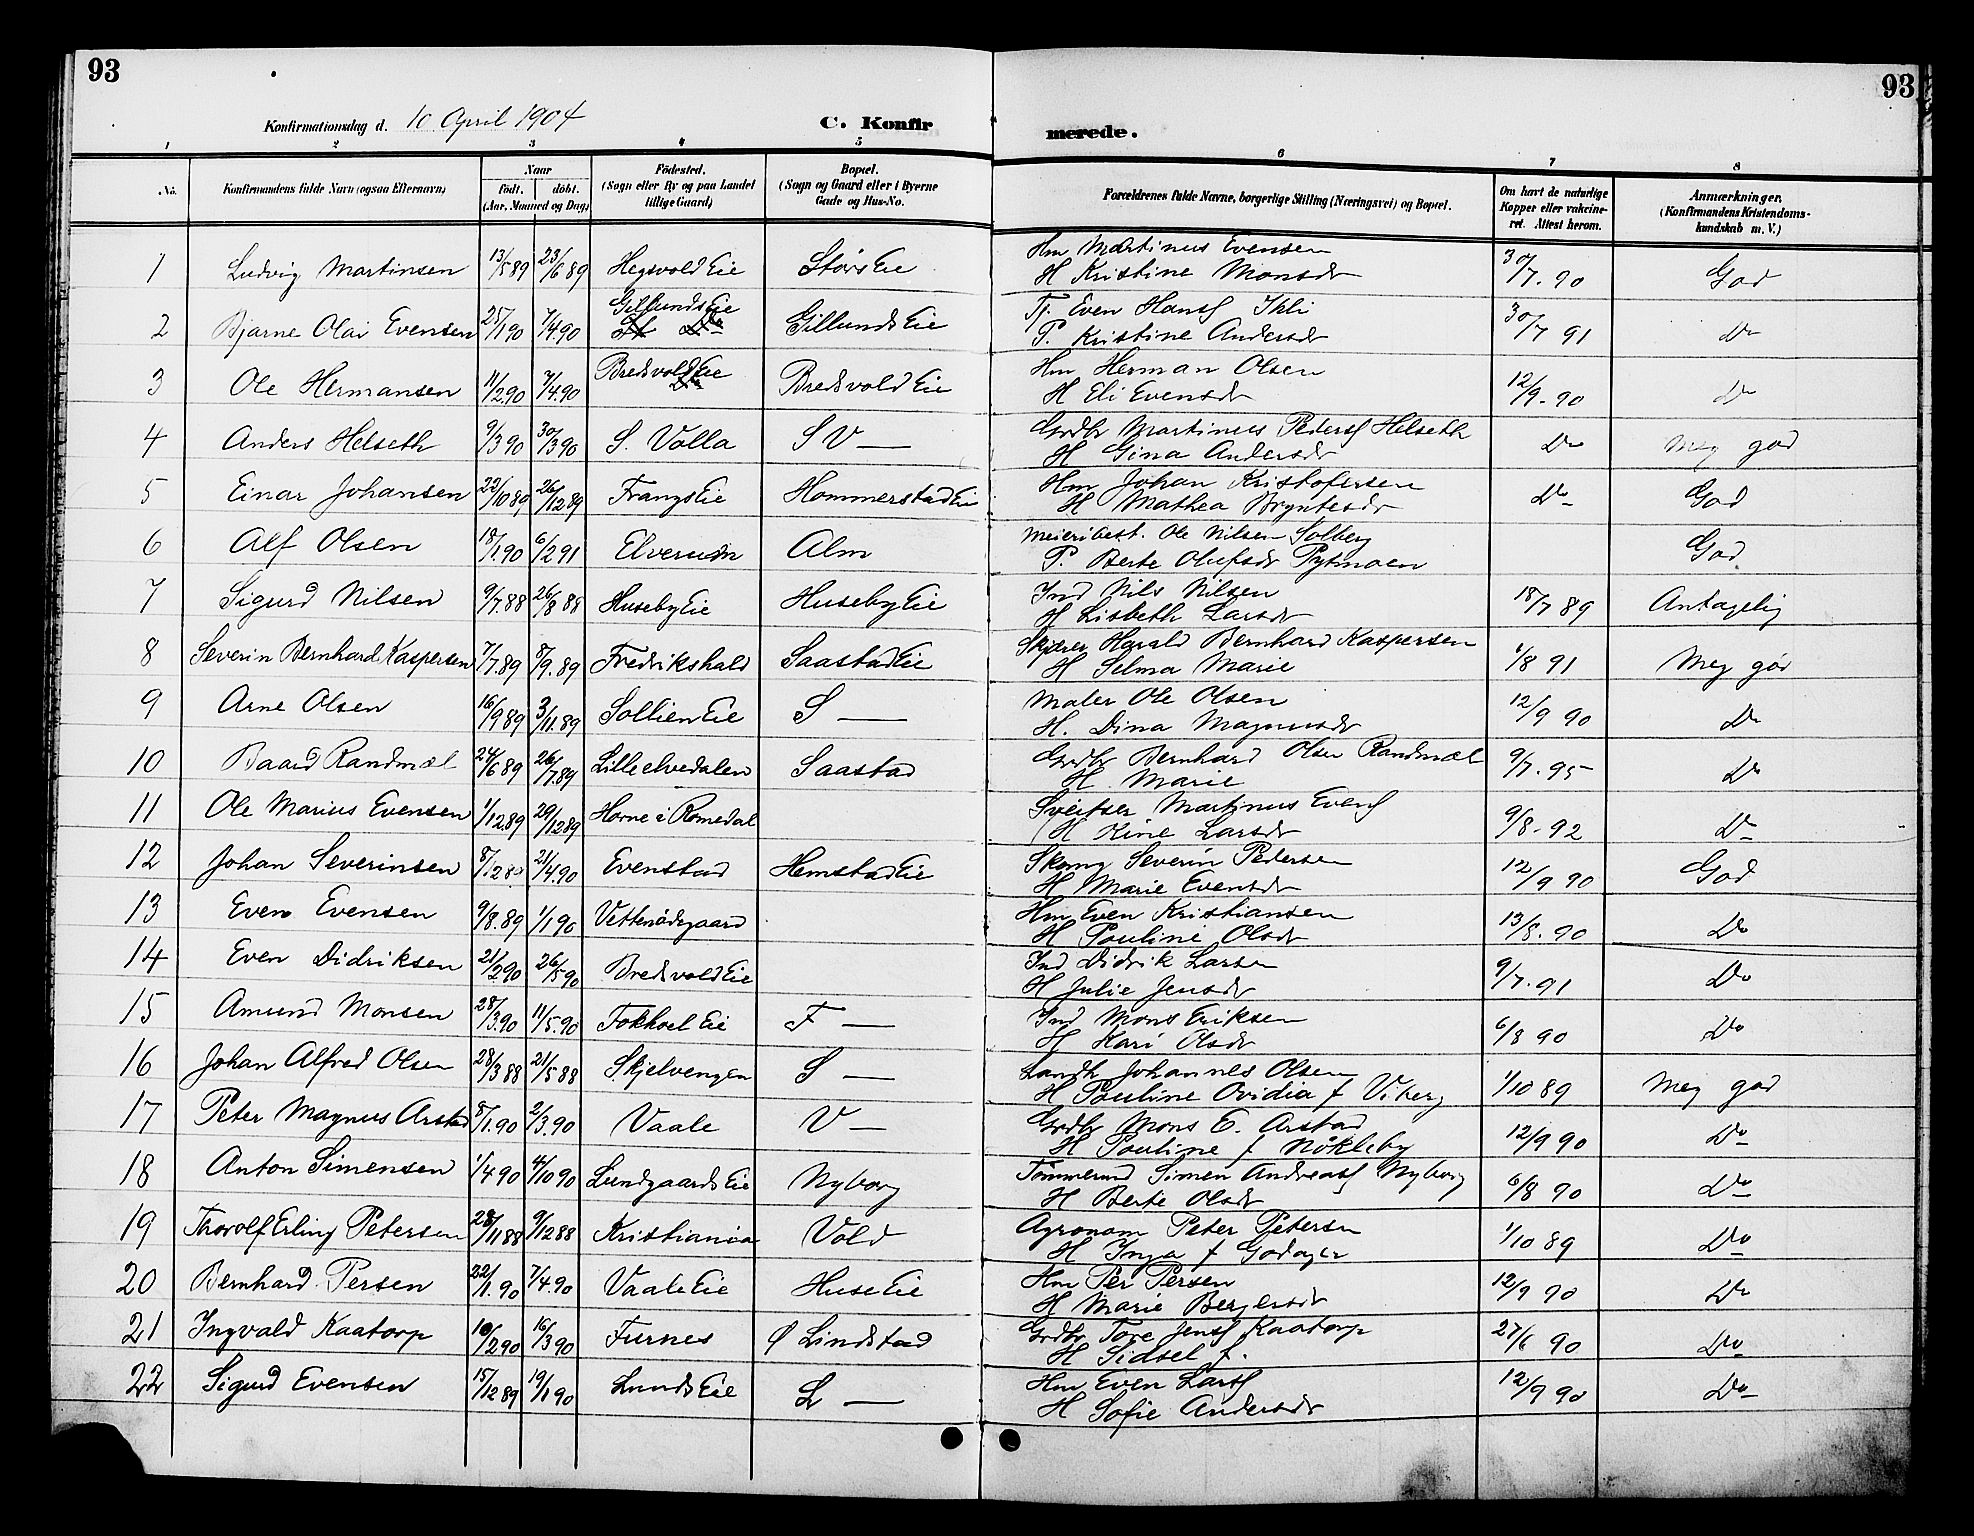 93
93
Konfirmationsdag d. 10 April 1904
C. Konfirmerede.
1 2 3 4 5 6 7 8
No.
Konfirmandens fulde Navn (ogsaa Efternavn)
Naar
født. døbt.
(Aar, Maaned og Dag)
Fødested.
(Sogn eller By og paa Landet
tillige Gaard)
Bopæl.
(Sogn og Gaard eller i Byerne
Gade og Hus-No.
Forældrenes fulde Navne, borgerlige Stilling (Næringsvei) og Bopæl.
Om havt de naturlige
Kopper eller vakcine-
ret. Attest herom.
Anmærkninger.
(Konfirmandens Kristendoms-
kundskab m. V.)
1 Ludvig Martinsen 13/5 89 23/6 89 Hegsvold Eie Störs Eie Hm Martinus Evensen 30/7. 90 God
H Kristine Monsdr
2 Bjarne Olai Evensen 25/1 90 7/4. 90 Gillunds Eie Gillunds Eie Tj. Even Hansf Ihli 30/7 91 Do
P. Kristine Andersdr
3 Ole Hermansen 11/2 90 7/4. 90 Bredsvold Eie Bredsvold Eie Hm Herman Olsen 12/9. 90 Do
H Eli Evensdr
4 Anders Helseth 9/3 90 30/3 90 S. Volla S V — Grdbr Martinus Pedersf Helseth Do Meg god
H Gina Andersdr
5 Einar Johansen 22/10 89 26/12 89 Frangs Eie Hommerstad Eie Hm Johan Kristofersen Do God
H Mathea Bryntesdr
6 Alf Olsen 18/1. 90 6/2 91 Elverum Alm Meieribest. Ole Nilsen Solberg God
P. Berte Olufsdr Pytmoen
7 Sigurd Nilsen 9/7. 88 26/8 88 Huseby Eie Huseby Eie Ind Nils Nilsen 18/7 89 Antagelig
H Lisbeth Larsdr
8 Severin Bernhard Kaspersen 7/7. 89 8/9. 89 Fredrikshald Saastad Eie Harald Bernhard Kaspersen 1/8 91 Meg god
H Selma Marie
9 Arne Olsen 16/9 89 3/11. 89 Sollien Eie S — Maler Ole Olsen 12/9 90 Do
H. Dina Magnusdr
10 Baard Randmæl 24/6 89 26/7. 89 Lilleelvedalen Saastad Grdbr Bernhard Olsen Randmæl 9/7. 95 Do
H. Marie
11 Ole Marius Evensen 1/12 89 29/12 89 Horne i Romedal Sveitser Martinus Evensf 9/8. 92 Do
H Kine Larsdr
12 Johan Severinsen 8/12 89 21/4. 90 Evenstad Hemstad Eie Skomg Severin Pedersen 12/9 90 God
H Marie Evensdr
13 Even Evensen 9/8. 89 1/1 90 Vettenödegaard Hm Even Kristiansen 13/8. 90 Do
H Pauline Olsdr
14 Even Didriksen 21/2 90 26/5 90 Bredsvold Eie Ind Didrik Larsen 9/7. 91 Do
H Julie Jensdr
15 Amund Monsen 28/3. 90 11/5. 90 Fokhoel Eie F — Ind Mons Eriksen 6/8 90 Do
H Kari Olsdr
16 Johan Alfred Olsen 28/3 88 21/5 88 Skjelvengen S — Landh Johannes Olsen 1/10 89 Meg god
H Pauline Ovidia f Viberg
17 Peter Magnus Arstad 8/1. 90 2/3. 90 Vaale V — Grdbr Mons E. Arstad 12/9 90 Do
H Pauline f Nökleby
18 Anton Simensen 1/4 90 12/10 90 Lundgaards Eie Nyborg Tömmermd Simen Andreasf Nyborg 6/8 90 Do
H Berte Olsdr
19 Thorolf Erling Petersen 28/11 88 9/12 88 Kristiania Vold Agronom Peter Petersen 1/10 89 Do
H Inga f Godager
20 Bernhard Persen 22/1. 90 7/4. 90 Vaale Eie Huse Eie Hm Per Persen 12/9 90 Do
H Marie Bergersdr
21 Ingvald Kaatorp 10/2 90 16/3 90 Furnes Ø Lindstad Grdbr Tore Jensf Kaatorp 27/6 90 Do
H Sidsel f.
22 Sigurd Evensen 15/12 89 19/1 90 Lunds Eie L — Hm Even Larsf 12/9 90 Do
H Sofie Andersdr